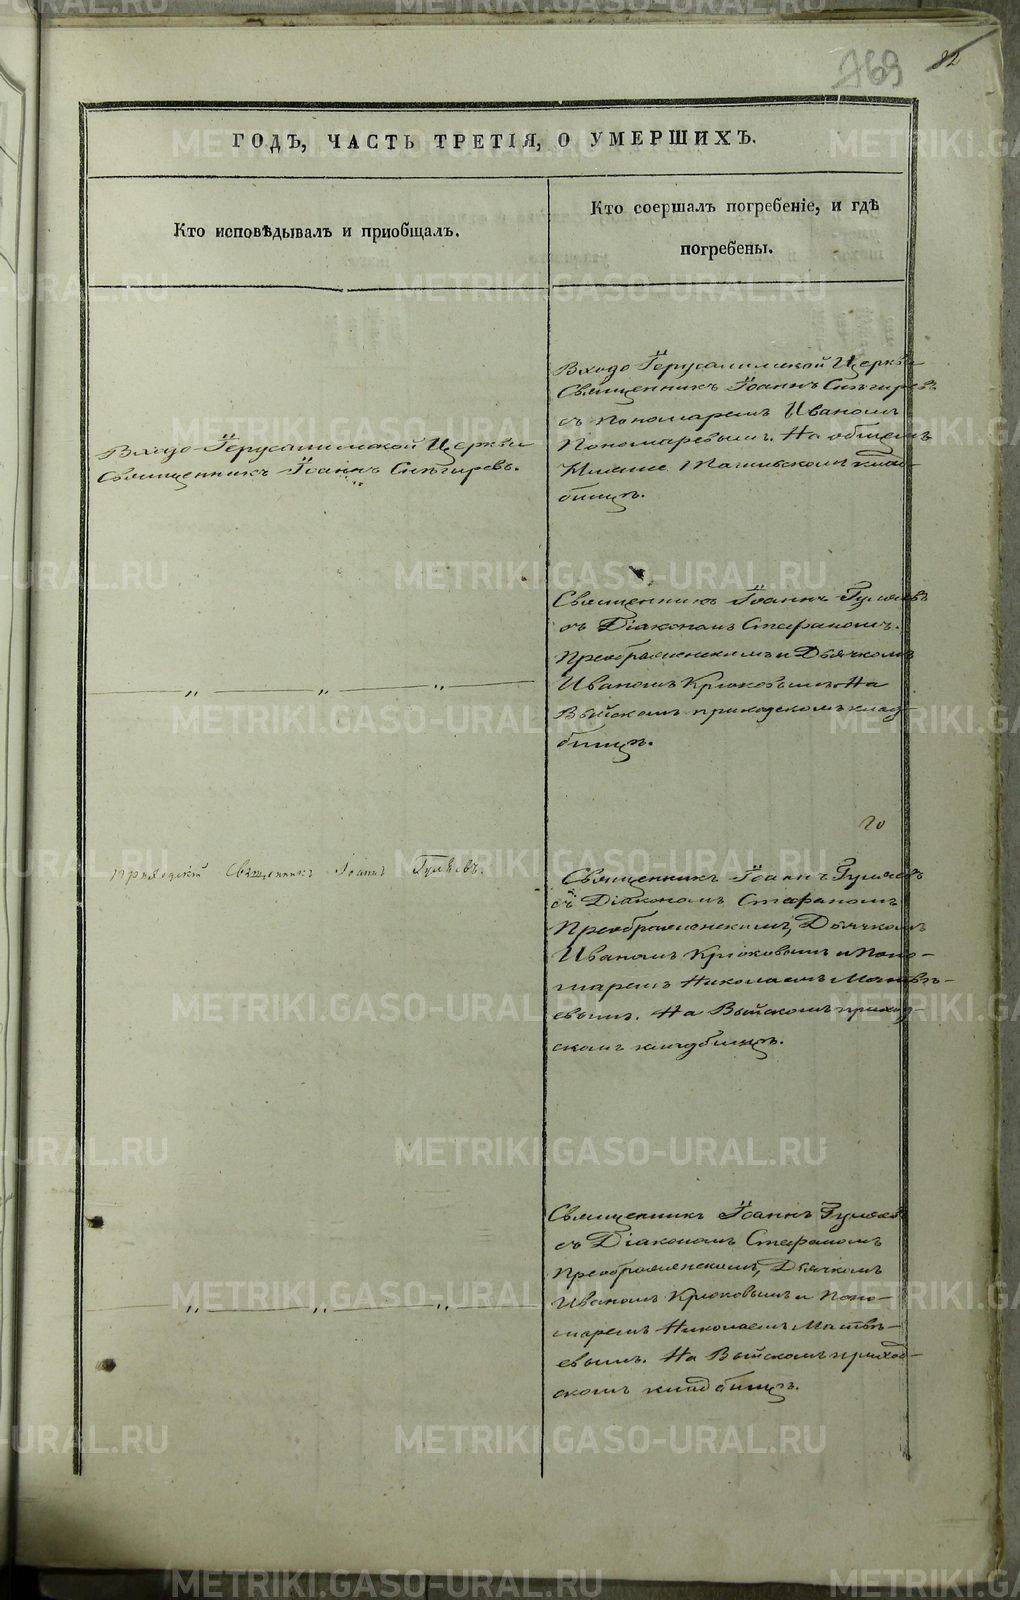 769
82
ГОДЪ, ЧАСТЬ ТРЕТІЯ, О УМЕРШИХЪ.
Кто исповѣдывалъ и пріобщалъ.
Кто соершалъ погребеніе, и гдѣ
погребены.
Входо-Іерусалимской Церкви
Священникъ Іоаннъ Снѣгиревъ.
Входо Іерусалимской Церкви
Священникъ Іоаннъ Снѣгиревъ
съ пономаремъ Иваномъ
Пономаревымъ. На общемъ
Нижне Тагильскомъ клад-
бищѣ.
— „ — „ — „ —
Священникъ Іоаннъ Гуляевъ
съ Діакономъ Стефаномъ
Преображенскимъ и Дьячкомъ
Иваномъ Крюковымъ. На
Выйскомъ приходскомъ клад-
бищѣ.
20
Приходскій Священникъ Іоаннъ Гуляевъ.
Священникъ Іоаннъ Гуляевъ
съ Діакономъ Стефаномъ
Преображенскимъ, Дьячкомъ
Иваномъ Крюковымъ и Поно-
маремъ Николаемъ Матвѣ-
евымъ. На Выйскомъ приход-
скомъ кладбищѣ.
„ — „ — „ —
Священникъ Іоаннъ Гуляевъ
съ Діакономъ Стефаномъ
Преображенскимъ, Дьячкомъ
Иваномъ Крюковымъ и Поно-
маремъ Николаемъ Матвѣ-
евымъ. На Выйскомъ приход-
скомъ кладбищѣ.
METRIKI.GASO-URAL.RU